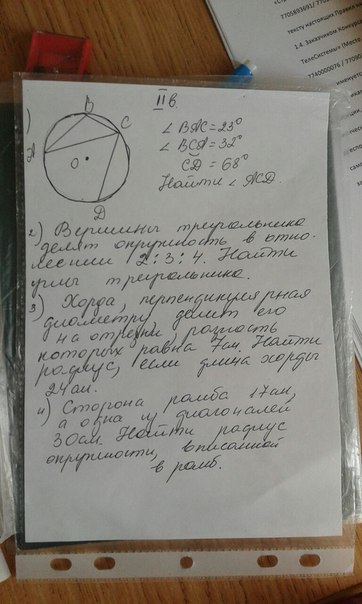 II в.
1)
B
C
A
O
D
∠ BAC = 23°
∠ BCA = 32°
CD = 68°
Найти ∠ ACD
2) Вершины треугольника
делят окружность в отно-
шении 2:3:4. Найти
углы треугольника.
3) Хорда, перпендикулярная
диаметру делит его
на отрезки, разность
которых равна 7см. Найти
радиус, если длина хорды
24см.
4) Сторона ромба 17см,
а одна из диагоналей
30см. Найти радиус
окружности, вписанной
в ромб.
7705893691/
тексту настоящих Прави
1.4. Заказчиком Конкур
ТелеСистемы» (Место
7740000076 / 7709